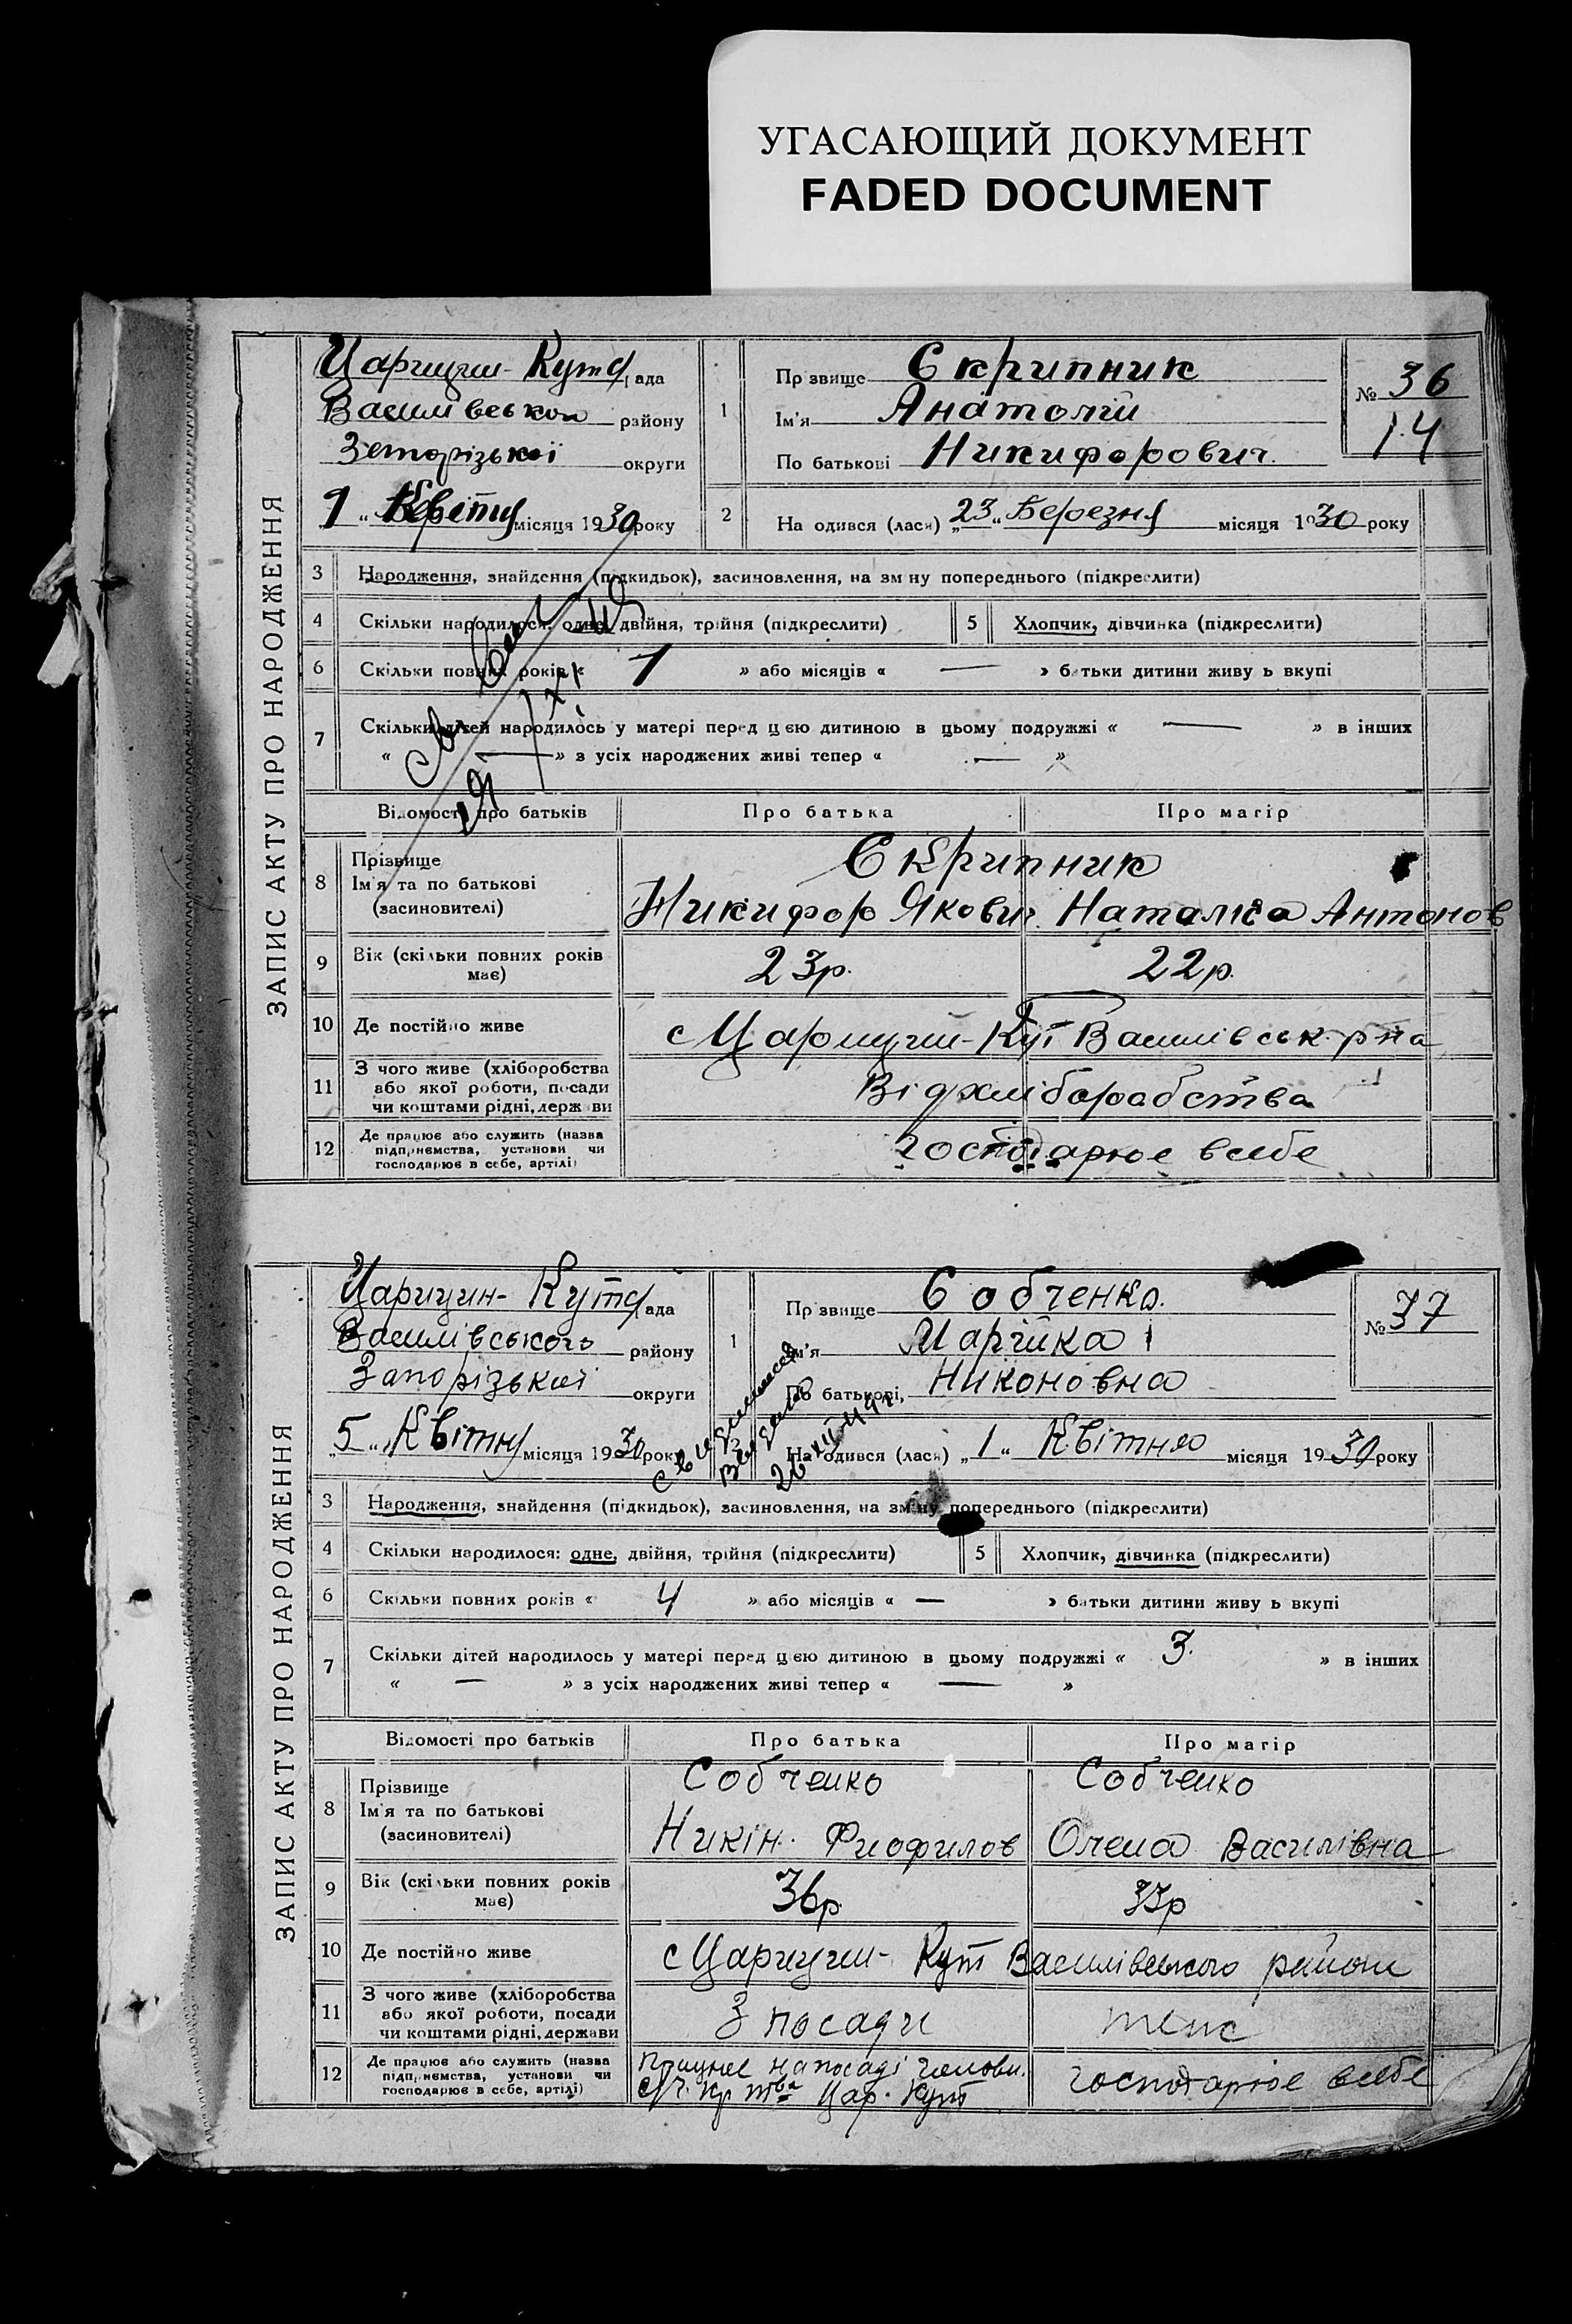 УГАСАЮЩИЙ ДОКУМЕНТ
FADED DOCUMENT
ЗАПИС АКТУ ПРО НАРОДЖЕННЯ
Царицин-Кут рада
Василівського району
Запорізької округи
„ 1 „ Квітня місяця 1930 року
1
Прізвище Скрипник
Ім'я Анатолій
По батькові Никифорович.
№ 36
14
2 На одився (лася) „23„ Березня місяця 1930 року
3 Народження, знайдення (підкидьок), засиновлення, на зм ну попереднього (підкреслити)
4 Скільки народилося: одне, двійня, трійня (підкреслити)
5 Хлопчик, дівчинка (підкреслити)
6 Скільки повних років « 1 » або місяців « — » батьки дитини живу ь вкупі
7 Скільки дітей народилось у матері перед цією дитиною в цьому подружжі « — » в інших
« — » з усіх народжених живі тепер « — »
Відомості про батьків Про батька Про матір
8 Прізвище
Ім'я та по батькові
(засиновителі)
Скрипник
Никифор Якович. Наталка Антонов
9 Вік (скільки повних років має) 23р. 22р.
10 Де постійно живе с Царицин-Кут Василівськ. р-на
11 З чого живе (хліборобства
або якої роботи, посади
чи коштами рідні, держави
Від хліборобства
12 Де працює або служить (назва
підприємства, установи чи
господарює в себе, артілі)
господарює в себе
ЗАПИС АКТУ ПРО НАРОДЖЕННЯ
Царицин-Кут рада
Василівського району
Запорізької округи
„ 5 „ Квітня місяця 1930 року
1
Прізвище Собченко.
Ім'я Марійка
По батькові Никоновна
№ 37
2 На одився (лася) „ 1 „ Квітня місяця 1930 року
3 Народження, знайдення (підкидьок), засиновлення, на зміну попереднього (підкреслити)
4 Скільки народилося: одне, двійня, трійня (підкреслити)
5 Хлопчик, дівчинка (підкреслити)
6 Скільки повних років « 4 » або місяців « — » батьки дитини живу ь вкупі
7 Скільки дітей народилось у матері перед цією дитиною в цьому подружжі « 3. » в інших
« — » з усіх народжених живі тепер « — »
Відомості про батьків Про батька Про матір
8 Прізвище
Ім'я та по батькові
(засиновителі)
Собченко Собченко
Никін. Фиофилов Олена Василівна
9 Вік (скільки повних років має) 36р. 33р
10 Де постійно живе с Царицин-Кут Василівського району
11 З чого живе (хліборобства
або якої роботи, посади
чи коштами рідні, держави
З посади теж
12 Де працює або служить (назва
підприємства, установи чи
господарює в себе, артілі)
Працює на посаді голови.
Цар. Кут
господарює в себе